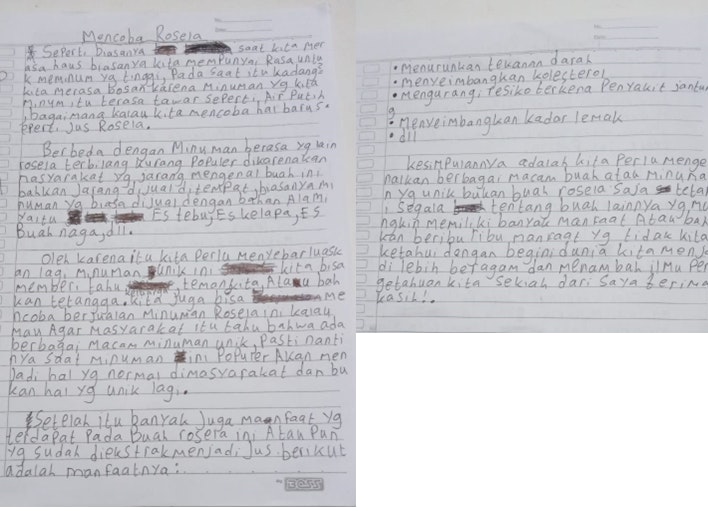 Mencoba Rosela
Seperti biasanya saat kita mer
asa haus biasanya kita mempunyai Rasa untu
k meminum yg tinggi, Pada saat itu kadang2
kita merasa bosan karena minuman yg kita
minum itu terasa tawar seperti, Air Putih
, bagaimana kalau kita mencoba hal baru s
eperti jus Rosela.
Berbeda dengan Minuman berasa yg lain
rosela terbilang kurang Populer dikarenakan
masyarakat yg jarang mengenal buah ini
bahkan jarang dijual ditempat, biasanya mi
numan yg biasa dijual dengan bahan Alami
yaitu Es tebu, Es kelapa, ES
Buah naga, dll.
Oleh karena itu kita Perlu Menyebarluask
an lagi minuman unik ini kita bisa
memberi tahu keluarga, teman kita, Atau bah
kan tetangga. kita juga bisa me
ncoba berjualan Minuman Rosela ini kalau
mau Agar masyarakat itu tahu bahwa ada
berbagai macam minuman unik, Pasti nanti
nya saat minuman ini Populer Akan men
jadi hal yg normal dimasyarakat dan bu
kan hal yg unik lagi.
Setelah itu banyak Juga manfaat yg
terdapat Pada Buah rosela ini Atau Pun
yg sudah diekstrak menjadi Jus. berikut
adalah manfaatnya:
BOSS
• Menurunkan tekanan darah
• menyeimbangkan kolesterol
• Mengurangi resiko terkena Penyakit jantun
g
• Menyeimbangkan kador lemak
• dll
kesimpulannya adalah kita Perlu menge
nalkan berbagai macam buah atau minuma
n yg unik bukan buah rosela saja tetap
i segala tentang buah lainnya yg mu
ngkin memiliki banyak manfaat Atau bah
kan beribu ribu manfaat yg tidak kita
ketahui dengan begini dunia kita menja
di lebih beragam dan menambah ilmu Pen
getahuan kita sekian dari saya terima
kasih!.